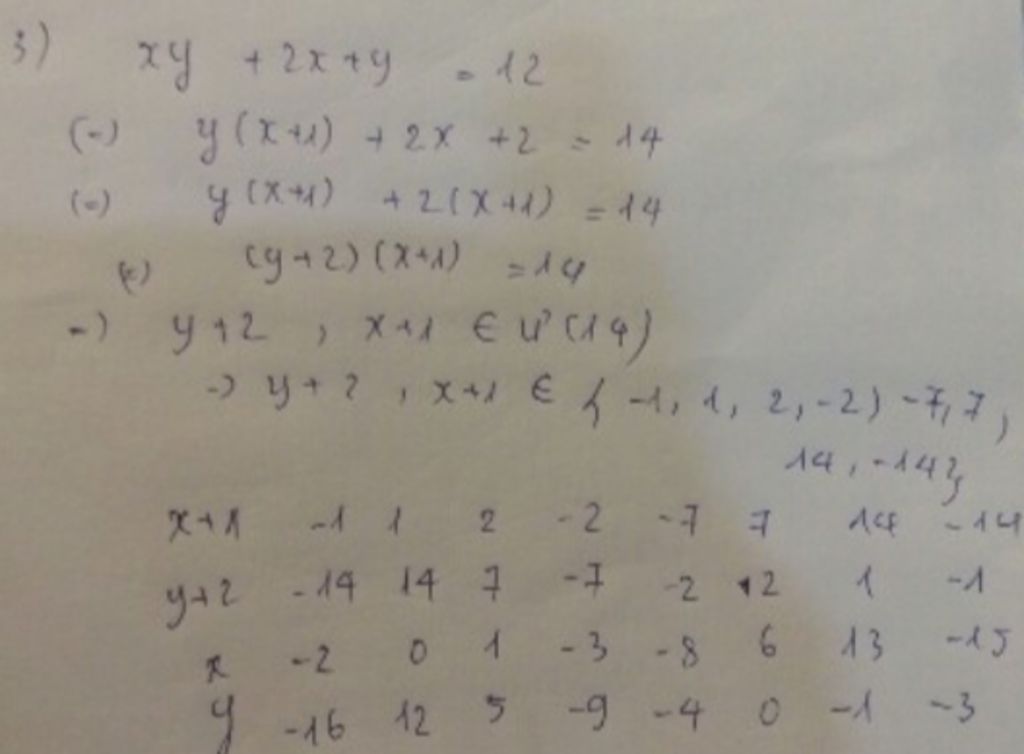 3) xy + 2x + y = 12
(=) y(x+1) + 2x + 2 = 14
(=) y(x+1) + 2(x+1) = 14
(=) (y+2)(x+1) = 14
=) y+2 , x+1 ∈ Ư(14)
-> y+2 , x+1 ∈ { -1, 1, 2, -2, -7, 7,
14, -14}
x+1 -1 1 2 -2 -7 7 14 -14
y+2 -14 14 7 -7 -2 2 1 -1
x -2 0 1 -3 -8 6 13 -15
y -16 12 5 -9 -4 0 -1 -3